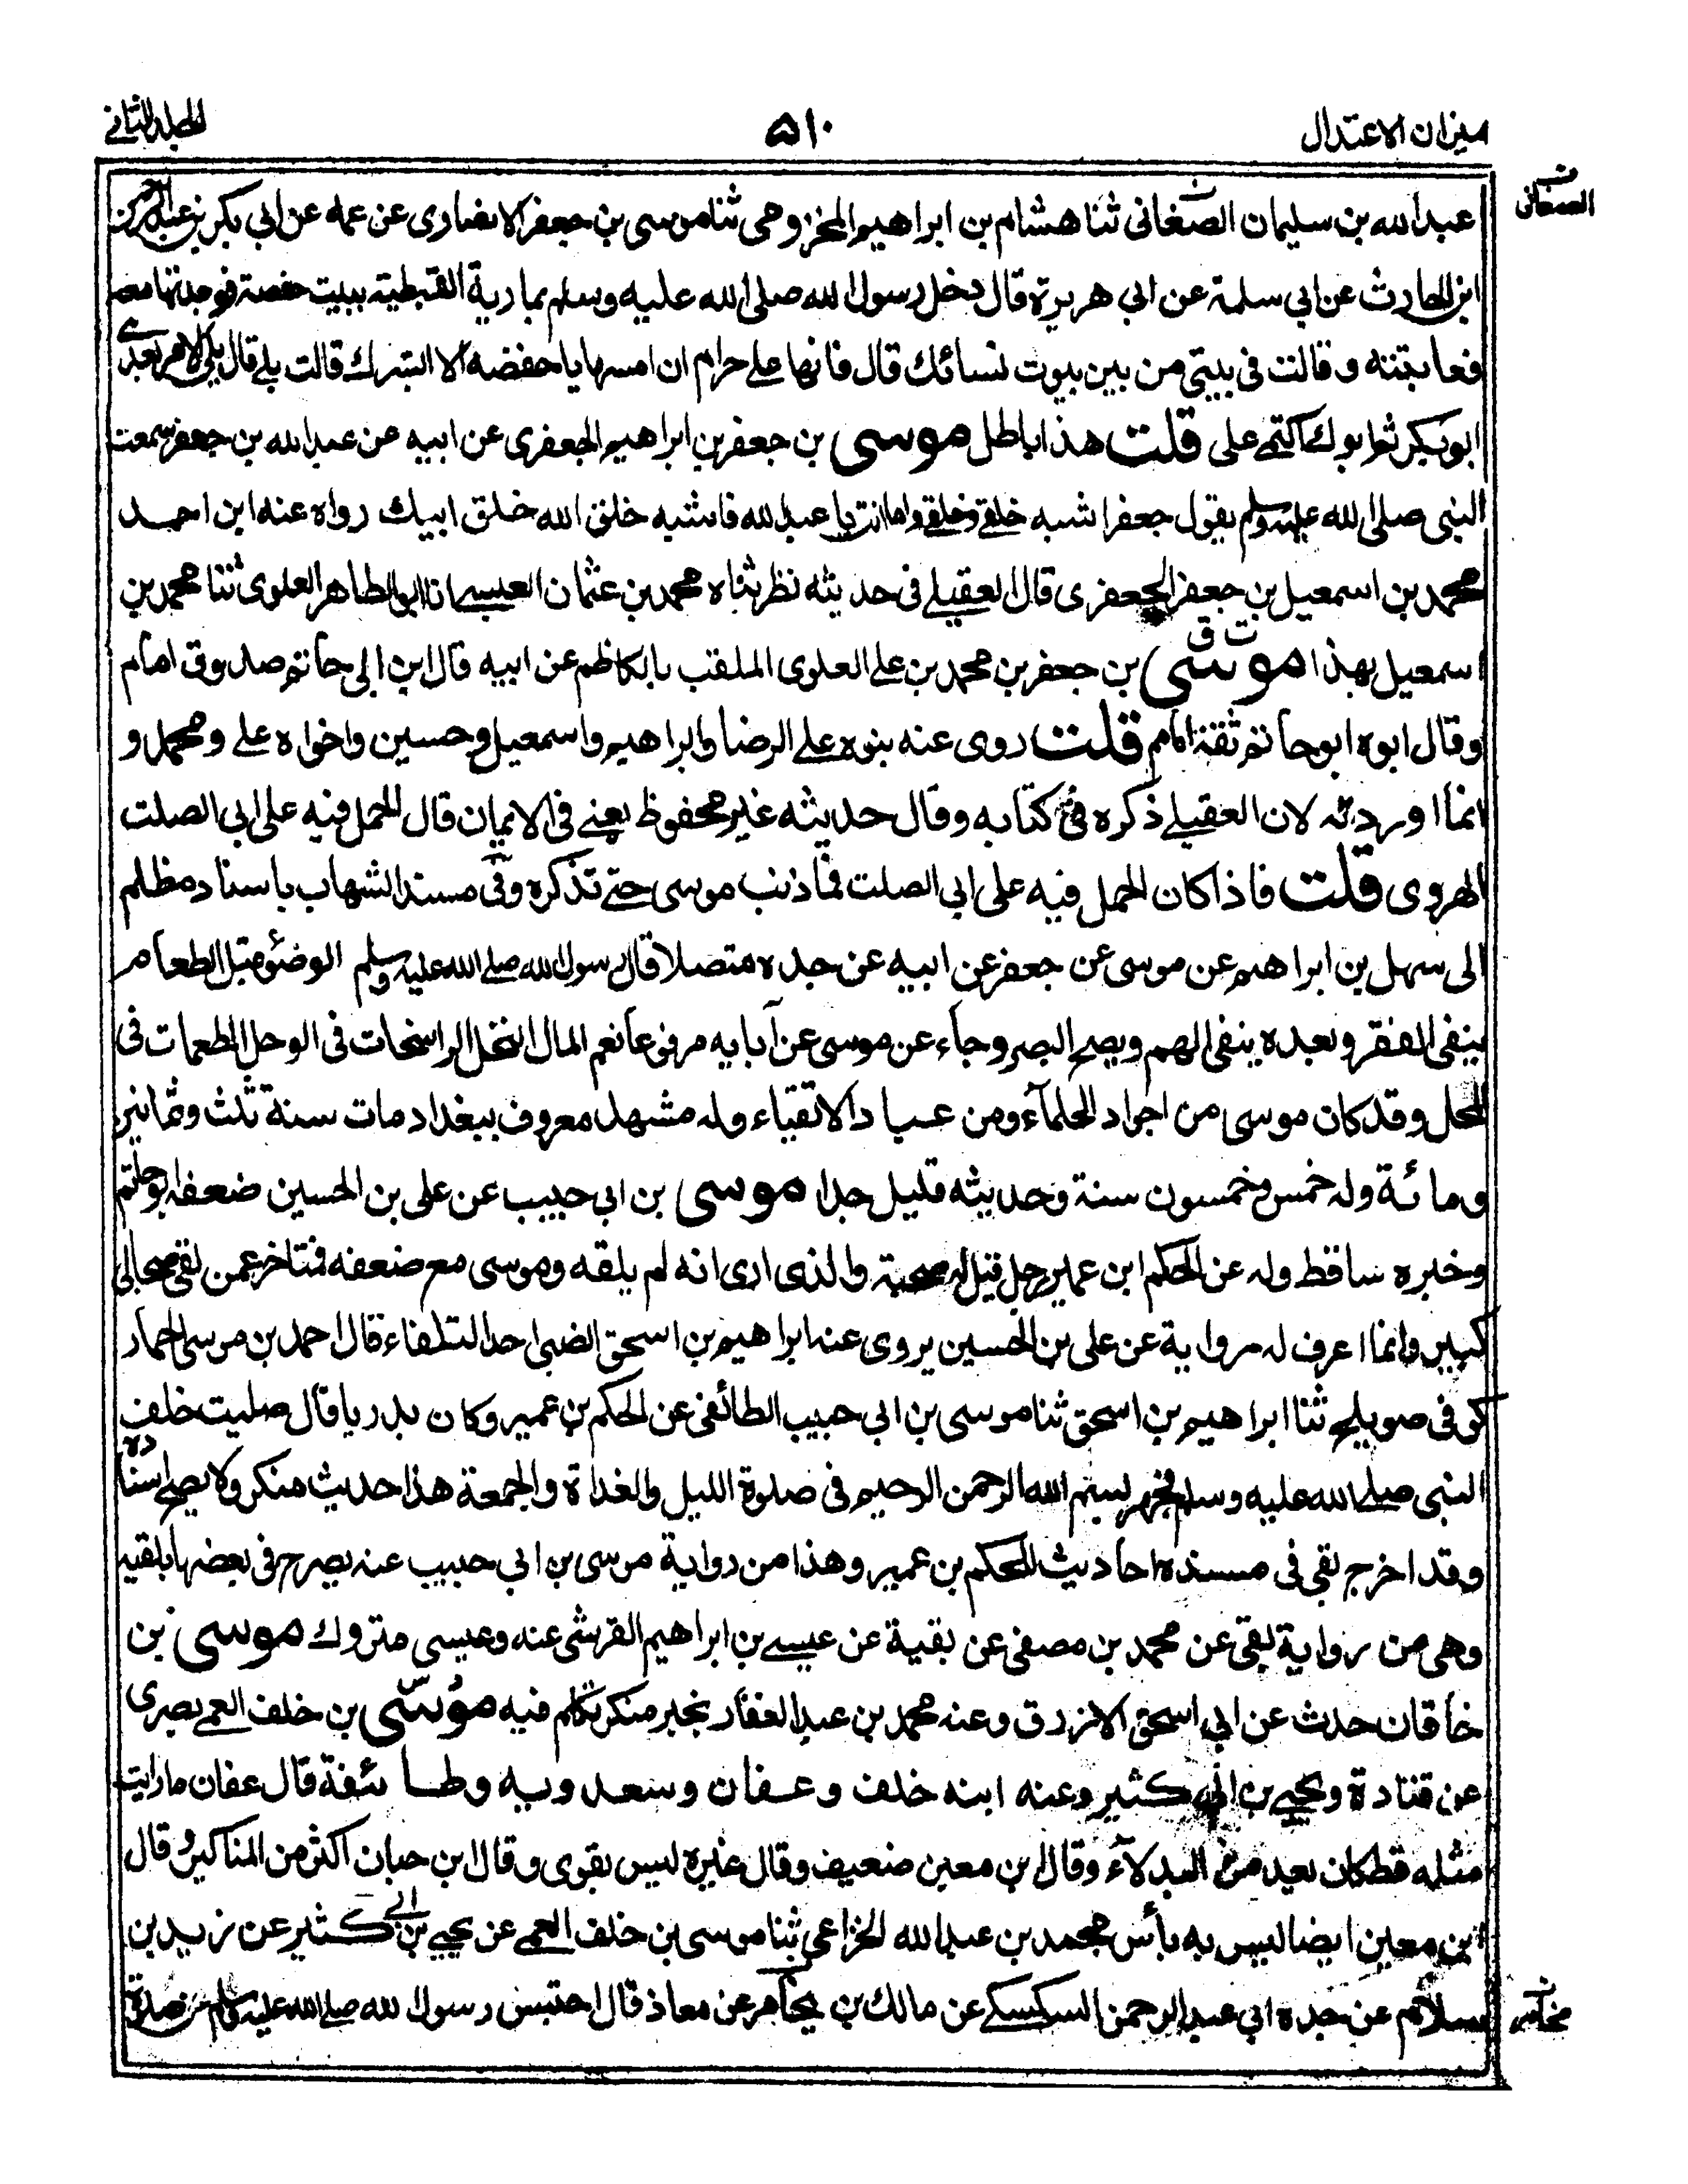 ميزان الاعتدال
٥١٠
المجلد الثاني
الصنعاني ن
عبد الله بن سليمان الصغاني ثنا هشام بن ابراهيم المخزومى ثنا موسى بن جعفر الانصارى عن عمه عن ابي بكر بن عبد الرحمن
ابن الحارث عن ابي سلمة عن ابي هريرة قال دخل رسول الله صلى الله عليه وسلم بمارية القبطية ببيت حفصة فوجدتها معه
فعاتبته وقالت فى بيتي من بين بيوت نسائك قال فانها علي حرام ان امسها يا حفصة الا ابشرك قالت بلي قال يلي الامر بعدي
ابو بكر ثم ابوك اكتمي على قلت هذا باطل موسى بن جعفر بن ابراهيم الجعفرى عن ابيه عن عبد الله بن جعفر سمعت
النبي صلى الله عليه وسلم يقول جعفر اشبه خلقي وخلقي واما انت يا عبد الله فاشبه خلق الله خلق ابيك رواه عنه ابن احمد
محمد بن اسمعيل بن جعفر الجعفرى قال العقيلي فى حديثه نظر ثناه محمد بن عثمان العبسي ثنا ابو الطاهر العلوى ثنا محمد بن
اسمعيل بهذا موسى ت ق بن جعفر بن محمد بن علي العلوى الملقب بالكاظم عن ابيه قال ابن ابي حاتم صدوق امام
وقال ابوه ابو حاتم ثقة امام قلت روى عنه بنوه علي الرضا وابراهيم واسمعيل وحسين واخواه علي ومحمد و
انما اوردته لان العقيلي ذكره في كتابه وقال حديثه غير محفوظ يعني فى الايمان قال الحمل فيه على ابى الصلت
الهروى قلت فاذا كان الحمل فيه على ابي الصلت فما ذنب موسى حتى تذكره وفى مسند الشهاب باسناد مظلم
الى سهل بن ابراهيم عن موسى عن جعفر عن ابيه عن جده متصلا قال رسول الله صلى الله عليه وسلم الوضوء قبل الطعام
ينفى الفقر وبعده ينفى الهم ويصح البصر وجاء عن موسى عن آبايه مرفوعا نعم المال النخل الراسخات فى الوحل المطعمات فى
المحل وقد كان موسى من اجواد الحلماء ومن عباد الاتقياء وله مشهد معروف ببغداد مات سنة ثلث وثمانين
ومائة وله خمس وخمسون سنة وحديثه قليل جدا موسى بن ابي حبيب عن علي بن الحسين ضعفه ابو حاتم
وخبره ساقط وله عن الحكم ابن عمير رجل قيل له صحبة والذى ارى انه لم يلقه وموسى مع ضعفه فمتاخر عمن لقي صحابي
كبير وانما اعرف له رواية عن على بن الحسين يروى عنه ابراهيم بن اسحق الضبى احد التلفاء قال احمد بن موسى الحمار
كوفى صويلح ثنا ابراهيم بن اسحق ثنا موسى بن ابي حبيب الطائفى عن الحكم بن عمير وكان بدريا قال صليت خلف
النبي صلى الله عليه وسلم فجهر ببسم الله الرحمن الرحيم فى صلوة الليل والغداة والجمعة هذا حديث منكر ولا يصح اسناده
وقد اخرج بقي فى مسنده احاديث للحكم بن عمير وهذا من رواية موسى بن ابي حبيب عنه يصرح فى بعضها بلقيه
وهى من رواية بقي عن محمد بن مصفى عن بقية عن عيسى بن ابراهيم القرشي عنه وعيسى متروك موسى بن
خاقان حدث عن ابي اسحق الازرق وعنه محمد بن عبد الغفار بخبر منكر تكلم فيه موسى بن خلف العمي بصرى
عن قتادة ويحيى بن ابي كثير وعنه ابنه خلف وعفان وسعدويه وطائفة قال عفان ما رايت
مثله قط كان يعد من البدلاء وقال ابن معين ضعيف وقال غيره ليس بقوى وقال ابن حبان اكثر من المناكير وقال
ابن معين ايضا ليس به بأس محمد بن عبد الله الخزاعى ثنا موسى بن خلف العمي عن يحيى بن ابي كثير عن زيد بن
سلام عن جده ابي عبد الرحمن السكسكي عن مالك بن يخامر عن معاذ قال احتبس رسول الله صلى الله عليه وسلم عن صلوة
يخامر ن